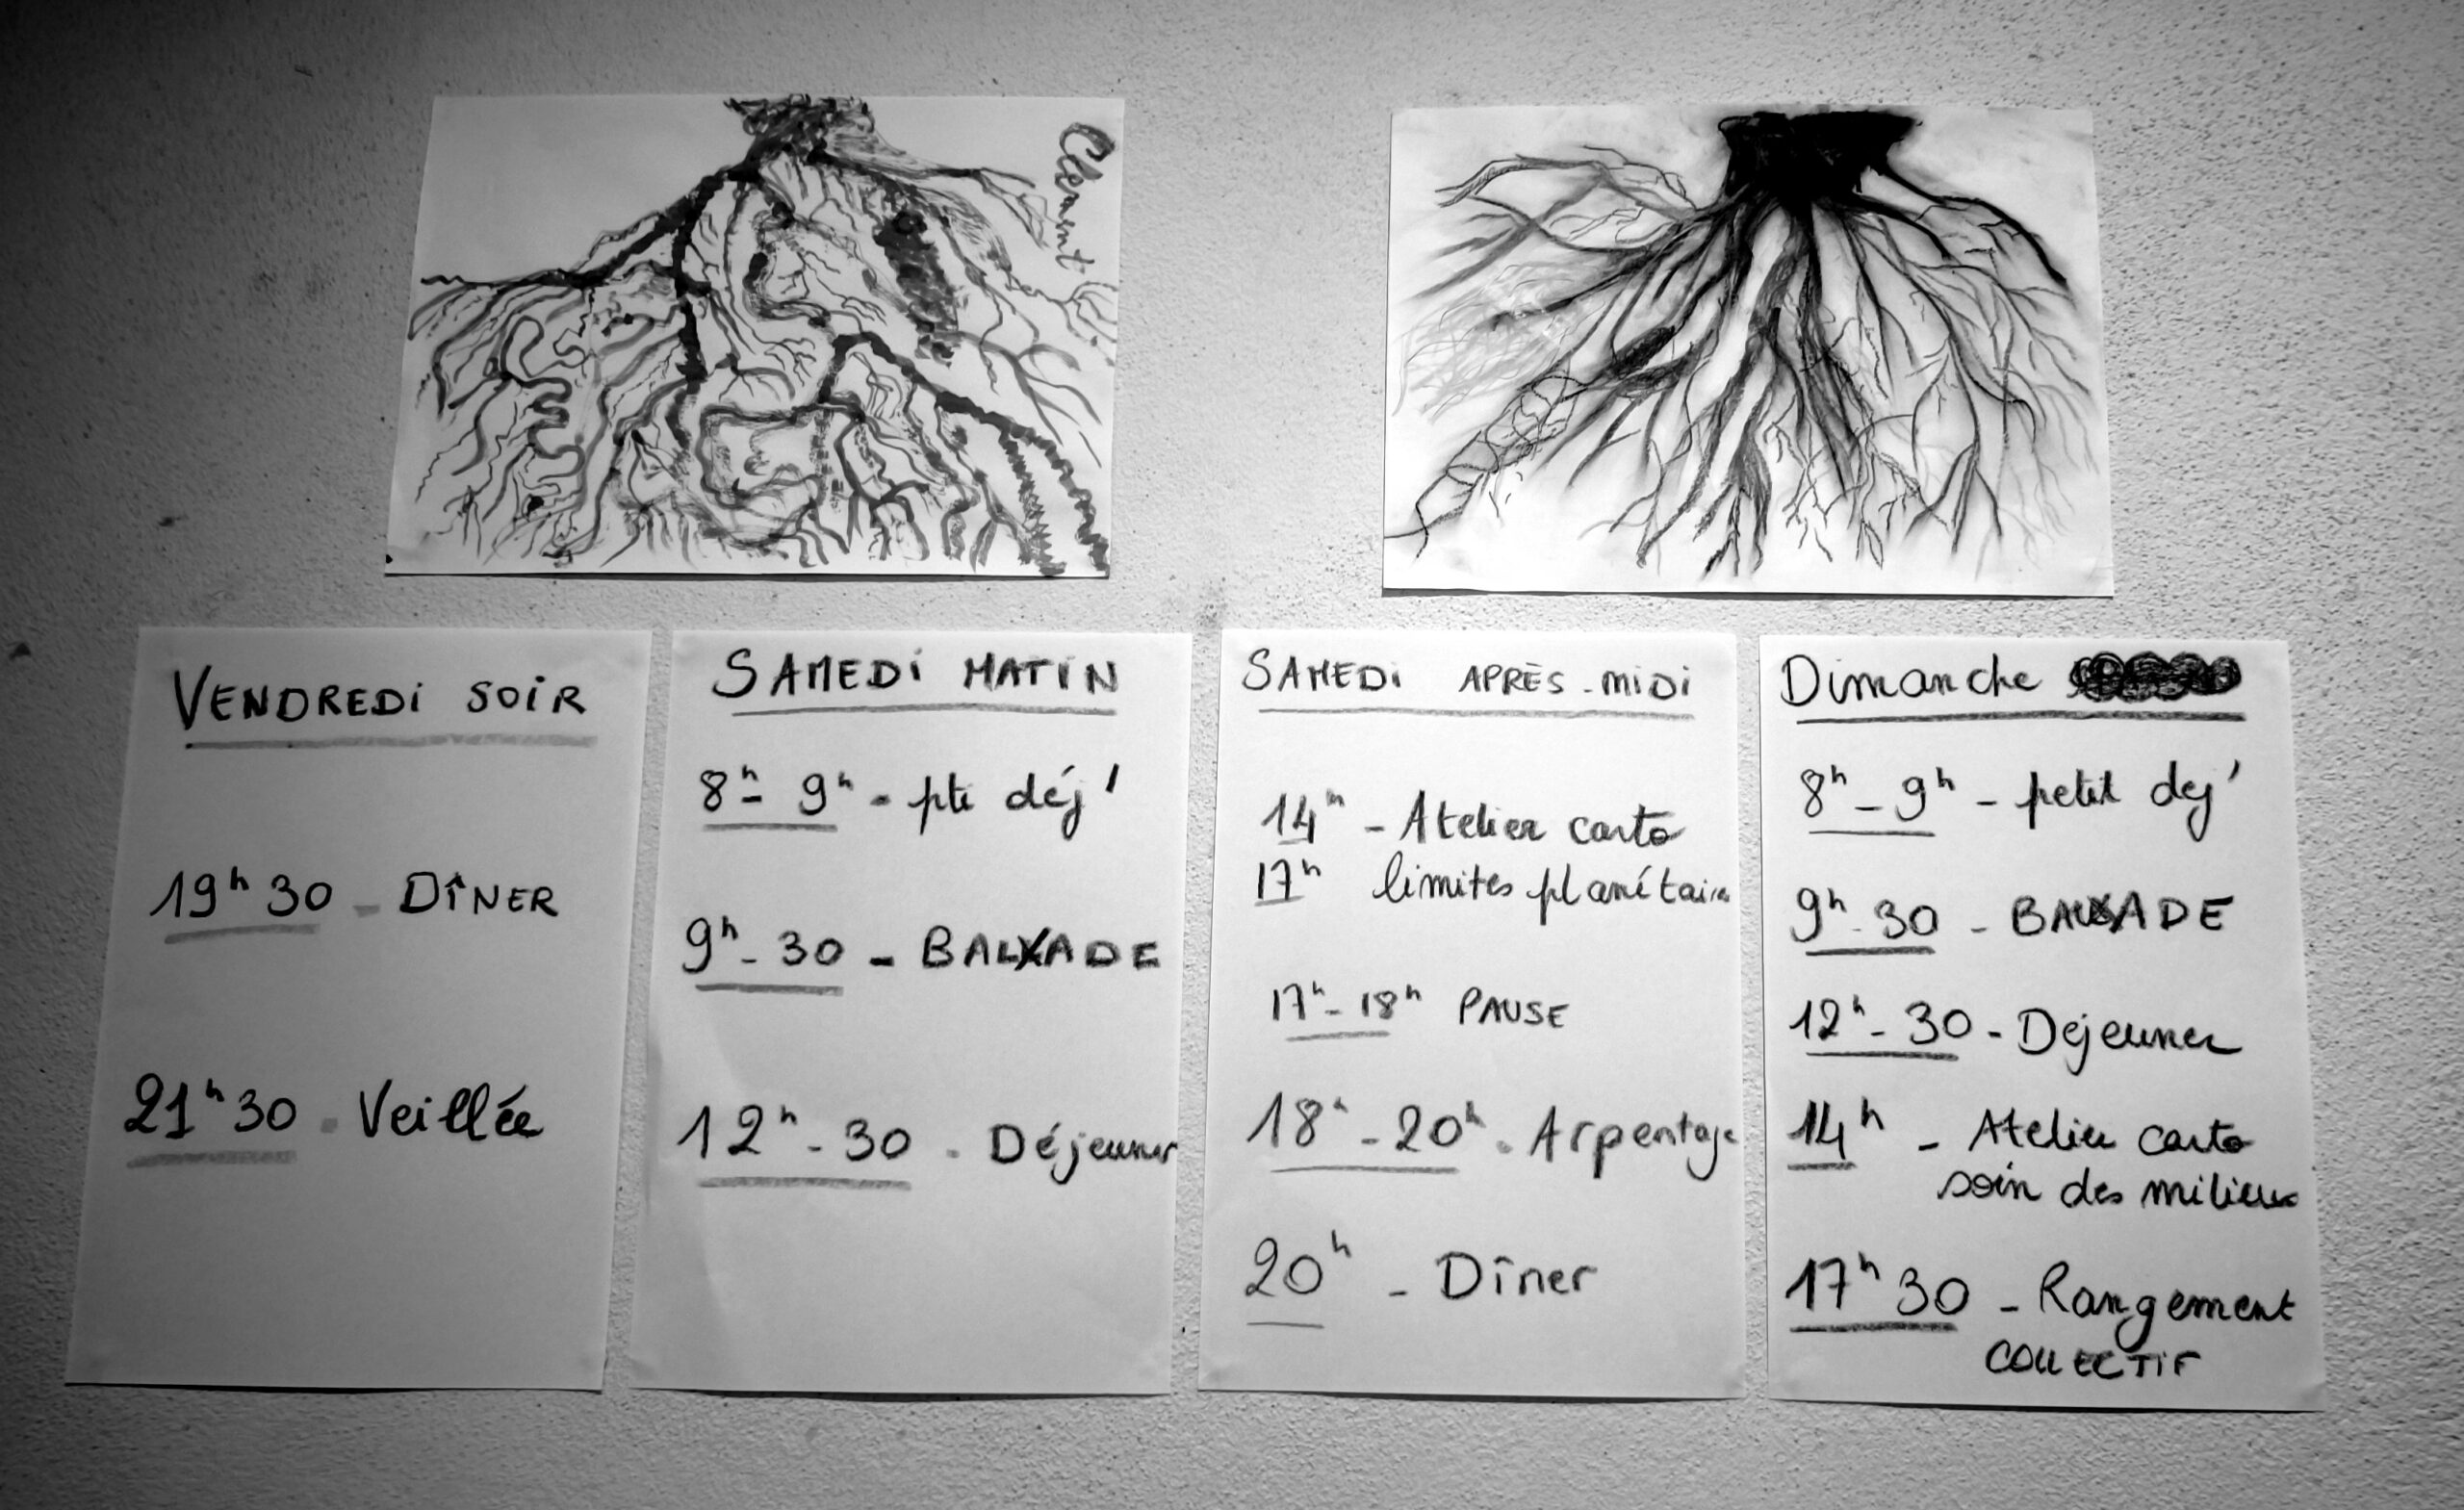 Clément
VENDREDI SOIR
19h30 - DÎNER
21h30 - Veillée
SAMEDI MATIN
8h - 9h - pti déj'
9h - 30 - BALADE
12h - 30 - Déjeuner
SAMEDI APRÈS-MIDI
14h - Atelier carto
17h limites planétaires
17h - 18h PAUSE
18h - 20h - Arpentage
20h - Dîner
Dimanche
8h - 9h - petit dej'
9h - 30 - BALADE
12h - 30 - Dejeuner
14h - Atelier carto
soin des milieux
17h30 - Rangement
COLLECTIF